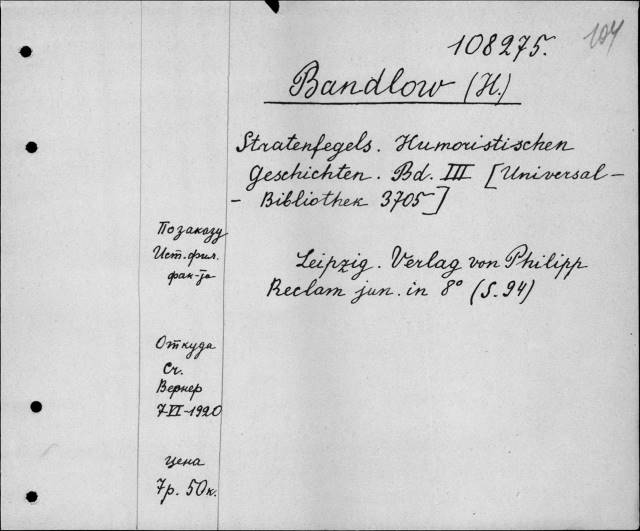 104
108275.
Bandlow (H.)
Stratenfegels. Humoristischen
Geschichten. Bd. III [Universal-
- Bibliothek 3705]
По заказу
Ист. фил.
фак-та
Leipzig. Verlag von Philipp
Reclam jun. in 8° (S. 94)
Откуда
Сч.
Вернер
7-VI-1920
цена
7р. 50к.